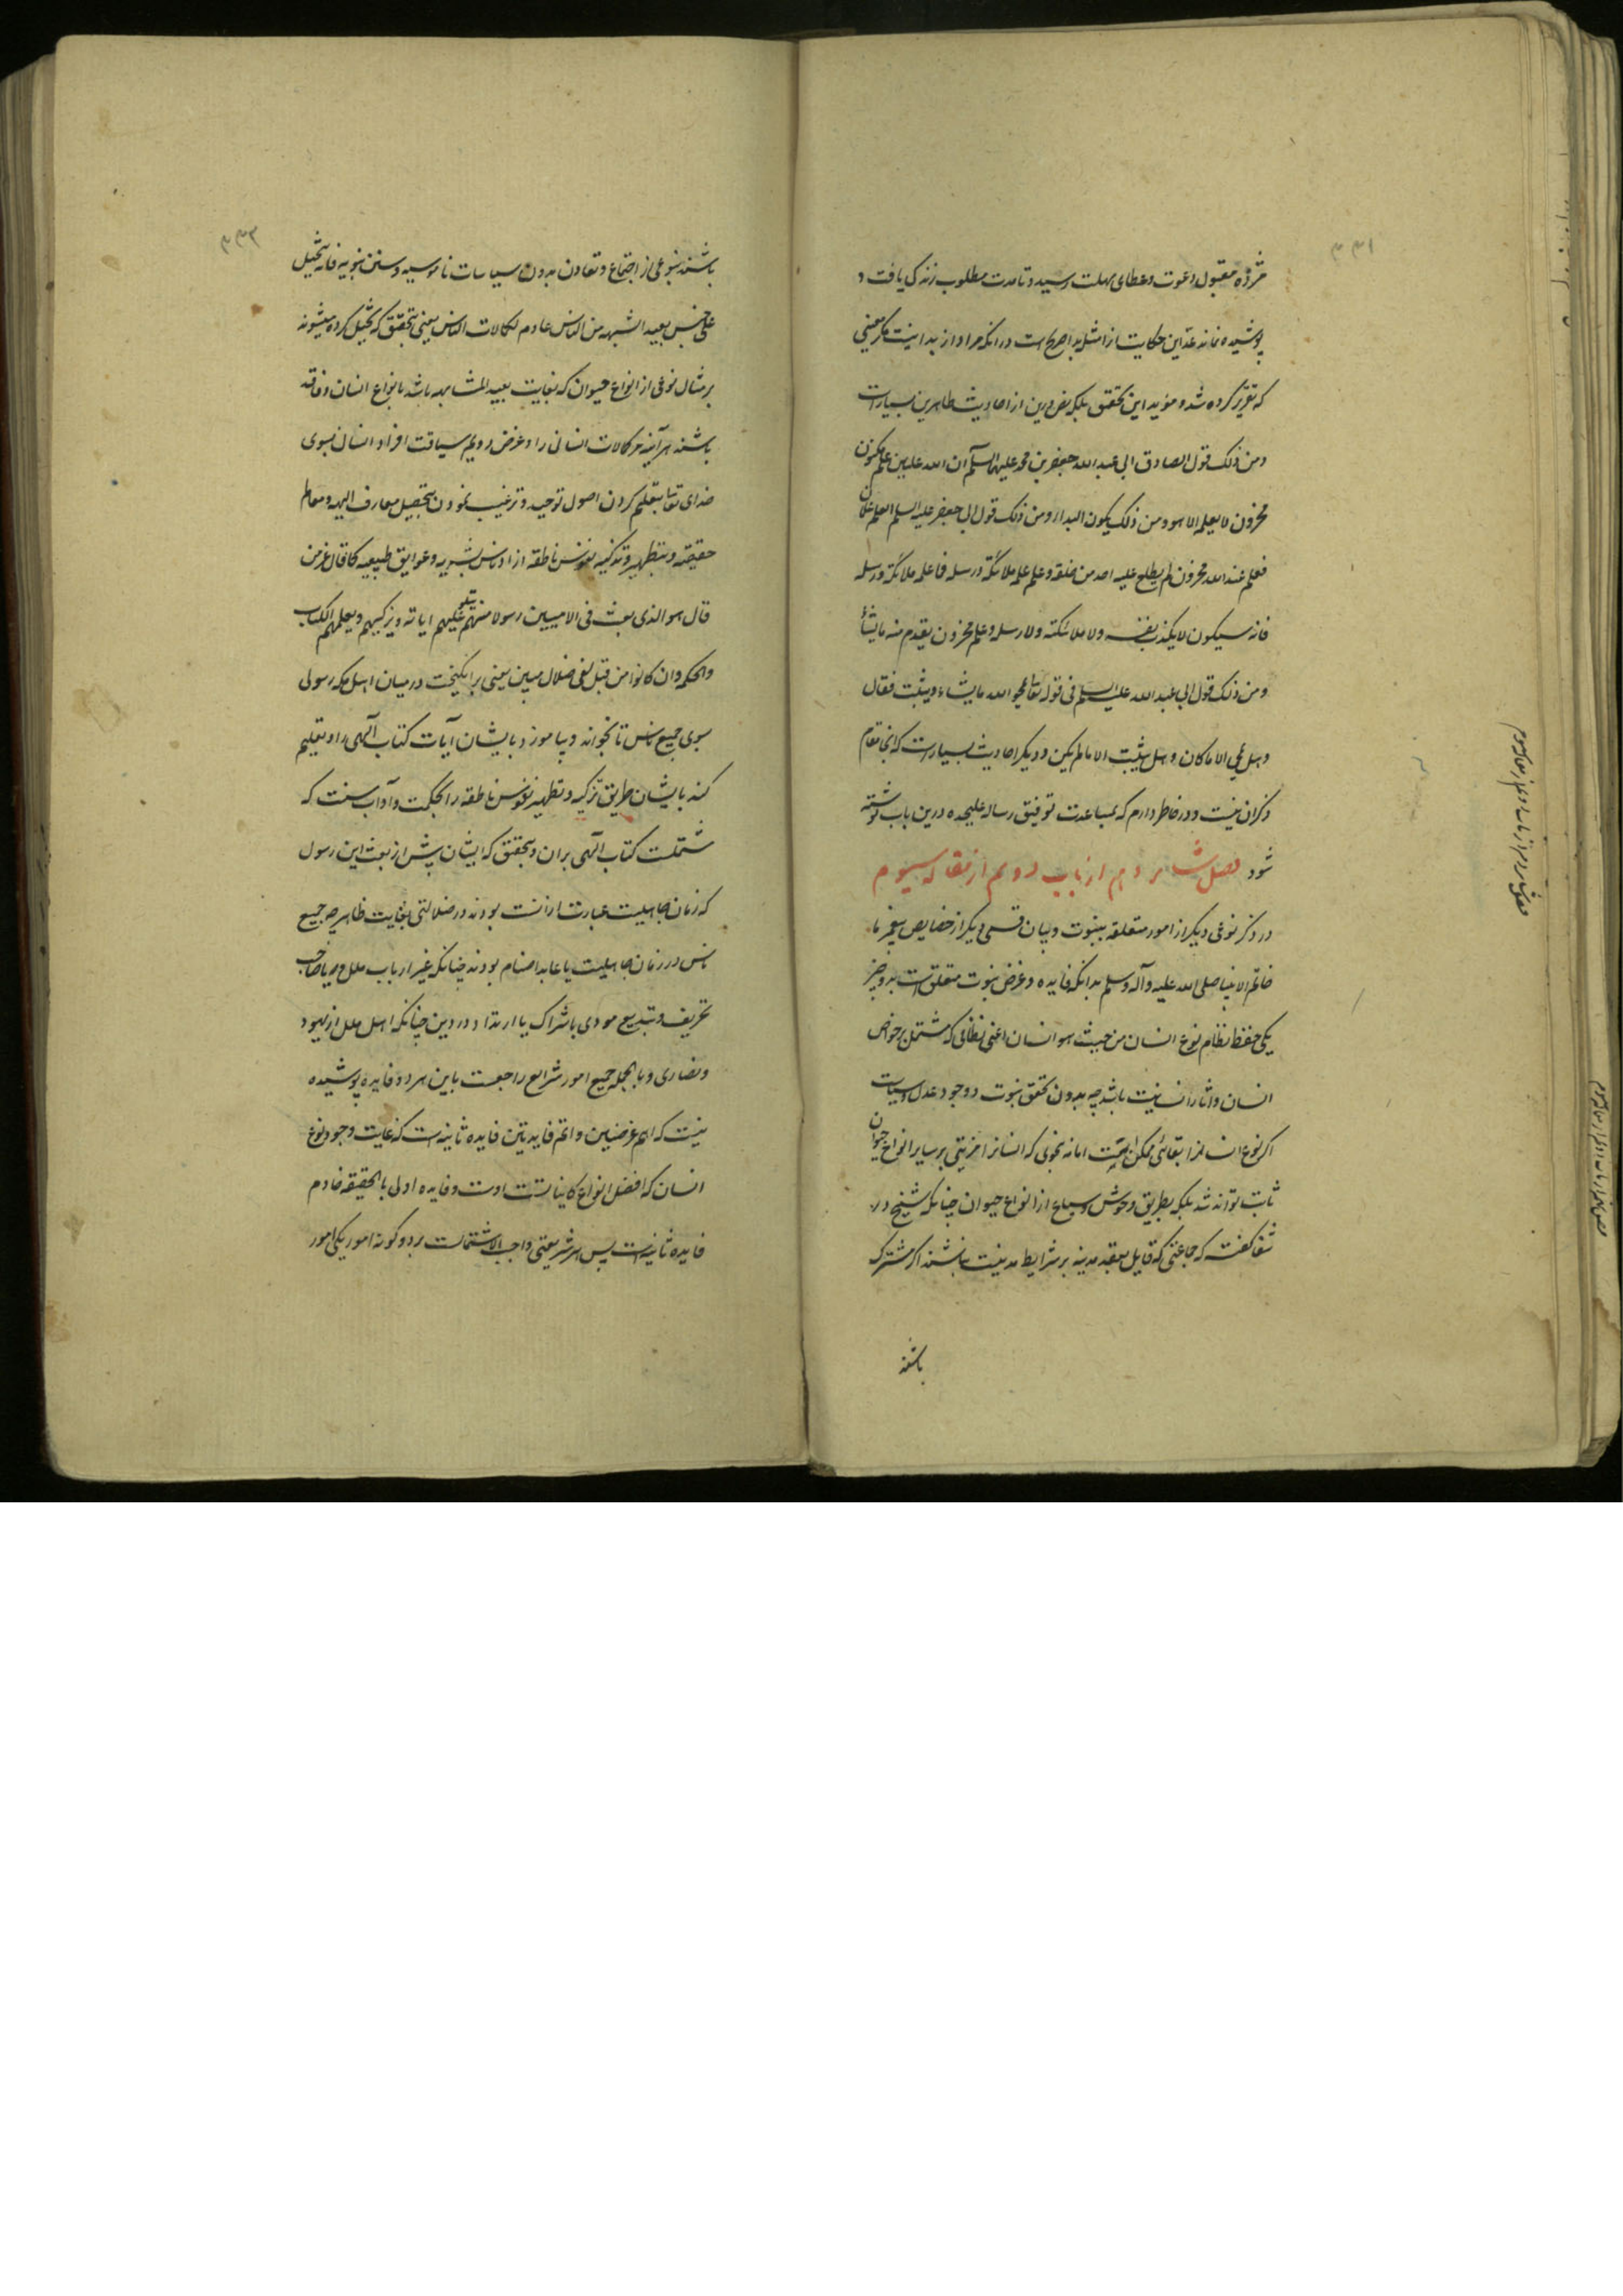 ۳۳۱
مژده مقبول دعوت و عطای مهلت رسید و تا مدت مطلوب زندکی یافت و
پوشیده نماند که این حکایت از امثله بدا صریح است در انکه مراد از بدا نیست مکر معنی
که تقریر کرده شد و مؤید این تحقیق بلکه نص درین از احادیث طاهرین بسیار است
ومن ذلک قول الصادق ابی عبد الله جعفر بن محمد علیهما السلم ان لله علمین علم مکنون
مخزون لا یعلمه الا هو ومن ذلک یکون البدا و من ذلک قول ابی جعفر علیه السلم العلم علمان
فعلم عند الله مخزون لم یطلع علیه احد من خلقه وعلم علمه ملائکته ورسله فما علمه ملائکته ورسله
فانه سیکون لا یکذب نفسه ولا ملائکته ولا رسله وعلم مخزون یقدم منه ما یشأ
ومن ذلک قول ابی عبد الله علیه السلم فی قوله تعالی یمحو الله ما یشاء ویثبت فقال
وهل یمحی الا ما کان وهل یثبت الا ما لم یکن و دیکر احادیث بسیار است که اینجا مقام
ذکر ان نیست و در خاطر دارم که بمساعدت توفیق رساله علیحده درین باب نوشته
شود فصل شانزدهم از باب دویم از مقاله سیوم
در ذکر نوعی دیکر از امور متعلقه بنبوت و بیان قسمی دیکر از خصایص پیغمبر ما
خاتم الانبیا صلی الله علیه و آله وسلم بدانکه فایده و غرض نبوت متعلق است بدو چیز
یکی حفظ نظام نوع انسان من حیث هو انسان اعنی نظامی که مشتمل بر خواص
انسان و اثار انسانیت باشد چه بدون تحقق نبوت و وجود عدل و سیاست
اکر نوع انسانرا بقائی ممکن است اما نه بنحوی که انسانرا مزیتی بر سایر انواع حیوان
ثابت تواند شد بلکه بطریق وحوش و سباع از انواع حیوان چنانکه شیخ در
شفا کفته که جماعتی که قایل بعقد مدینه بر شرایط مدنیت نباشند اکر مشترک
باشند
۳۳۲
باشند بنوعی از اجتماع و تعاون بدون سیاسات ناموسیه و سنن نبویه فانه یتحیل
علی جنس بعید الشبه من الناس عادم لکمالات الناس یعنی بتحقیق که تخیل کرده میشوند
بر مثال نوعی از انواع حیوان که بغایت بعید المشابهه باشد بانواع انسان و فاقد
باشند هر آینه مر کمالات انسانی را و غرض دویم سیاقت افراد انسان بسوی
خدای تعالی بتعلیم کردن اصول توحید و ترغیب نمودن بتحصیل معارف الهیه و معالم
حقیقیه و بتطهیر و تزکیه نفوس ناطقه از ادناس بشریه و عوایق طبیعیه کما قال عز من
قال هو الذی بعث فی الامیین رسولا منهم یتلو علیهم ایاته ویزکیهم ویعلمهم الکتاب
والحکمه وان کانوا من قبل لفی ضلال مبین یعنی بر انکیخت در میان اهل مکه رسولی
سوی جمیع ناس تا بخواند و بیاموزد بایشان آیات کتاب آلهی را و تعلیم
کند بایشان طریق تزکیه و تطهیر نفوس ناطقه را بحکمت و آداب سنت که
مشتملست کتاب الهی بران و بتحقیق که ایشان پیش از بعث این رسول
که زمان جاهلیت عبارت از انست بودند در ضلالتی بغایت ظاهر چه جمیع
ناس در زمان جاهلیت یا عابد اصنام بودند چنانکه غیر ارباب ملل و یا صاحب
تحریف و تبدیع مودی باشراک یا ارتداد در دین چنانکه اهل ملل از یهود
و نصاری و بالجمله جمیع امور شرایع راجعست باین هر دو فایده پوشیده
نیست که اهم غرضین و اتم فایدتین فایده ثانیه است که غایت وجود نوع
انسان که افضل انواع کاینات است اوست و فایده اولی بالحقیقه خادم
فایده ثانیه است پس هر شریعتی واجب الاشتمالست بر دو کونه امور یکی امور